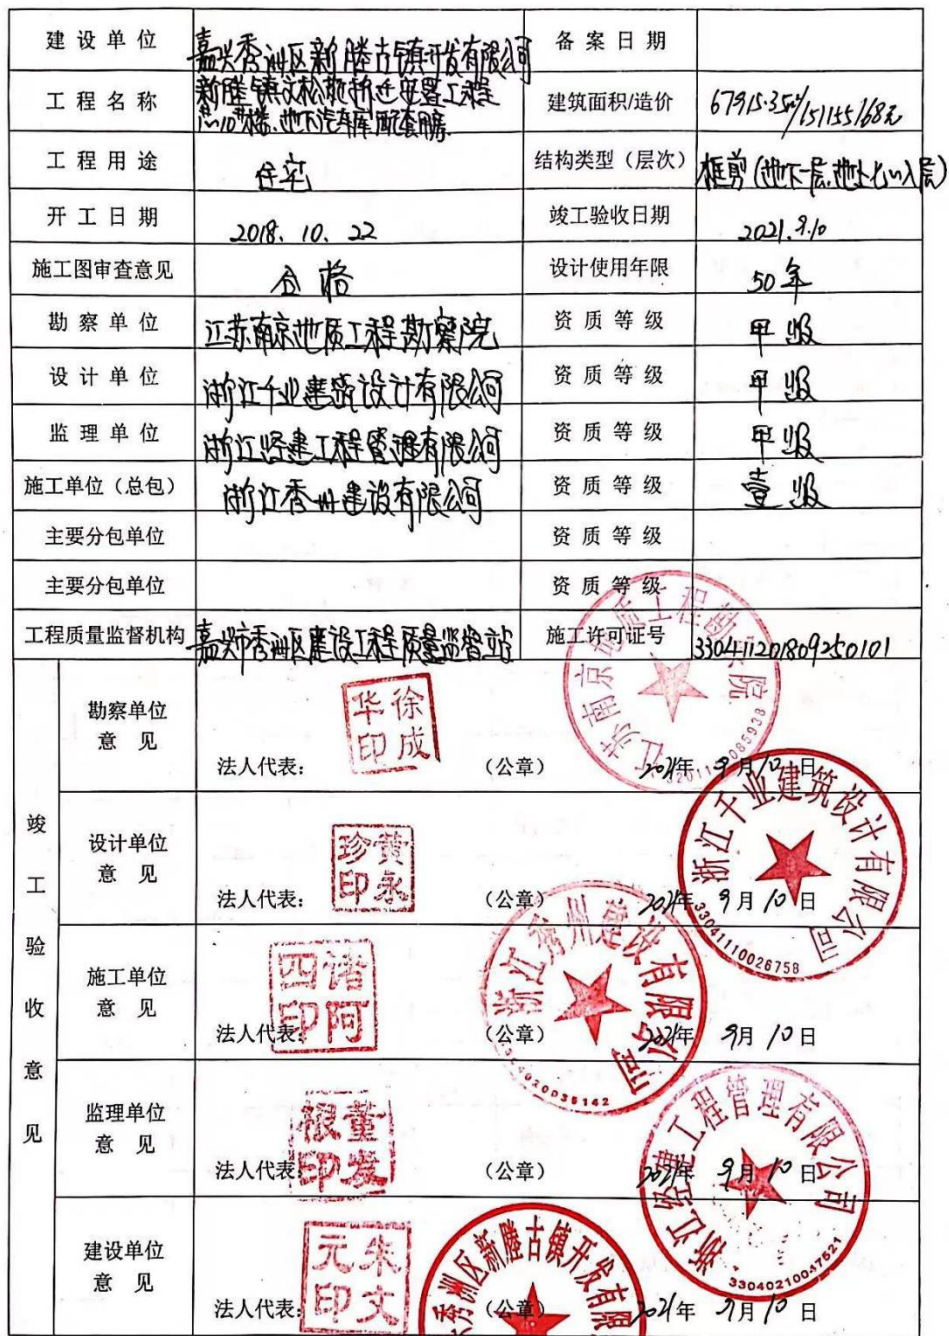 建设单位 嘉兴秀洲区新塍古镇开发有限公司 备案日期
工程名称 新塍镇文松苑拆迁安置工程 建筑面积/造价 67915.35m²/151155168元
1#~10#楼、地下汽车库、配套用房
工程用途 住宅 结构类型（层次） 框剪(地下一层,地上七~八层)
开工日期 2018. 10. 22 竣工验收日期 2021.9.10
施工图审查意见 合格 设计使用年限 50年
勘察单位 江苏南京地质工程勘察院 资质等级 甲级
设计单位 浙江千业建筑设计有限公司 资质等级 甲级
监理单位 浙江经建工程管理有限公司 资质等级 甲级
施工单位（总包） 浙江秀州建设有限公司 资质等级 壹级
主要分包单位 资质等级
主要分包单位 资质等级
工程质量监督机构 嘉兴市秀洲区建设工程质量监督站 施工许可证号 330411201809250101
竣工验收意见
勘察单位
意见
徐成华印
法人代表： （公章） 2021年 9月10日
江苏南京地质工程勘察院
设计单位
意见
黄永珍印
法人代表： （公章） 2021年 9月10日
浙江千业建筑设计有限公司
33041110026758
施工单位
意见
诸阿四印
法人代表： （公章） 2021年 9月10日
浙江秀州建设有限公司
监理单位
意见
董发根印
法人代表： （公章） 2021年 9月10日
浙江经建工程管理有限公司
33040210047521
建设单位
意见
朱文元印
法人代表： （公章） 2021年 9月10日
秀洲区新塍古镇开发有限